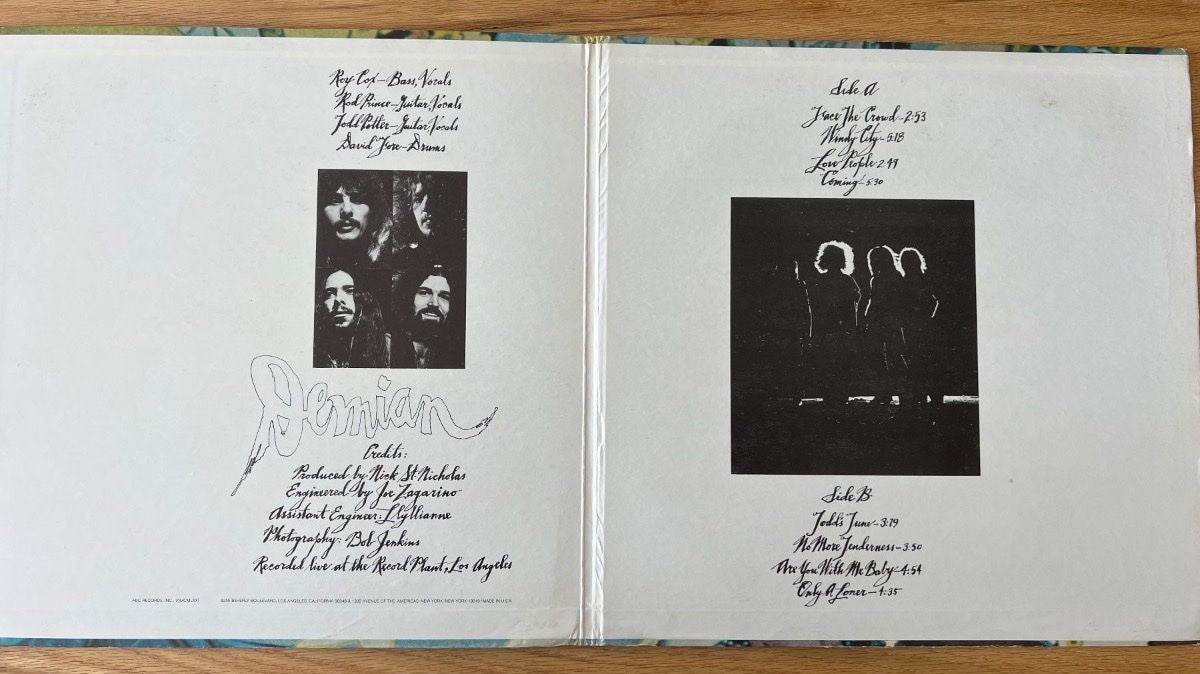 Roy Cox—Bass, Vocals
Rod Prince—Guitar, Vocals
Todd Potter—Guitar, Vocals
David Fore—Drums
Demian
Credits:
Produced by Nick St. Nicholas
Engineered by Joe Zagarino
Assistant Engineer: Llyllianne
Photography: Bob Jenkins
Recorded live at the Record Plant, Los Angeles
ABC RECORDS, INC.
BEVERLY BOULEVARD, LOS ANGELES, CALIFORNIA AVENUE OF THE AMERICAS NEW YORK, NEW YORK 10019 MADE IN U.S.A.
Side A
Face The Crowd—2:53
Windy City—5:18
Love People 2:49
Coming—5:30
Side B
Todd's Tune—3:19
No More Tenderness—3:50
Are You With Me Baby—4:54
Only A Loner—4:35